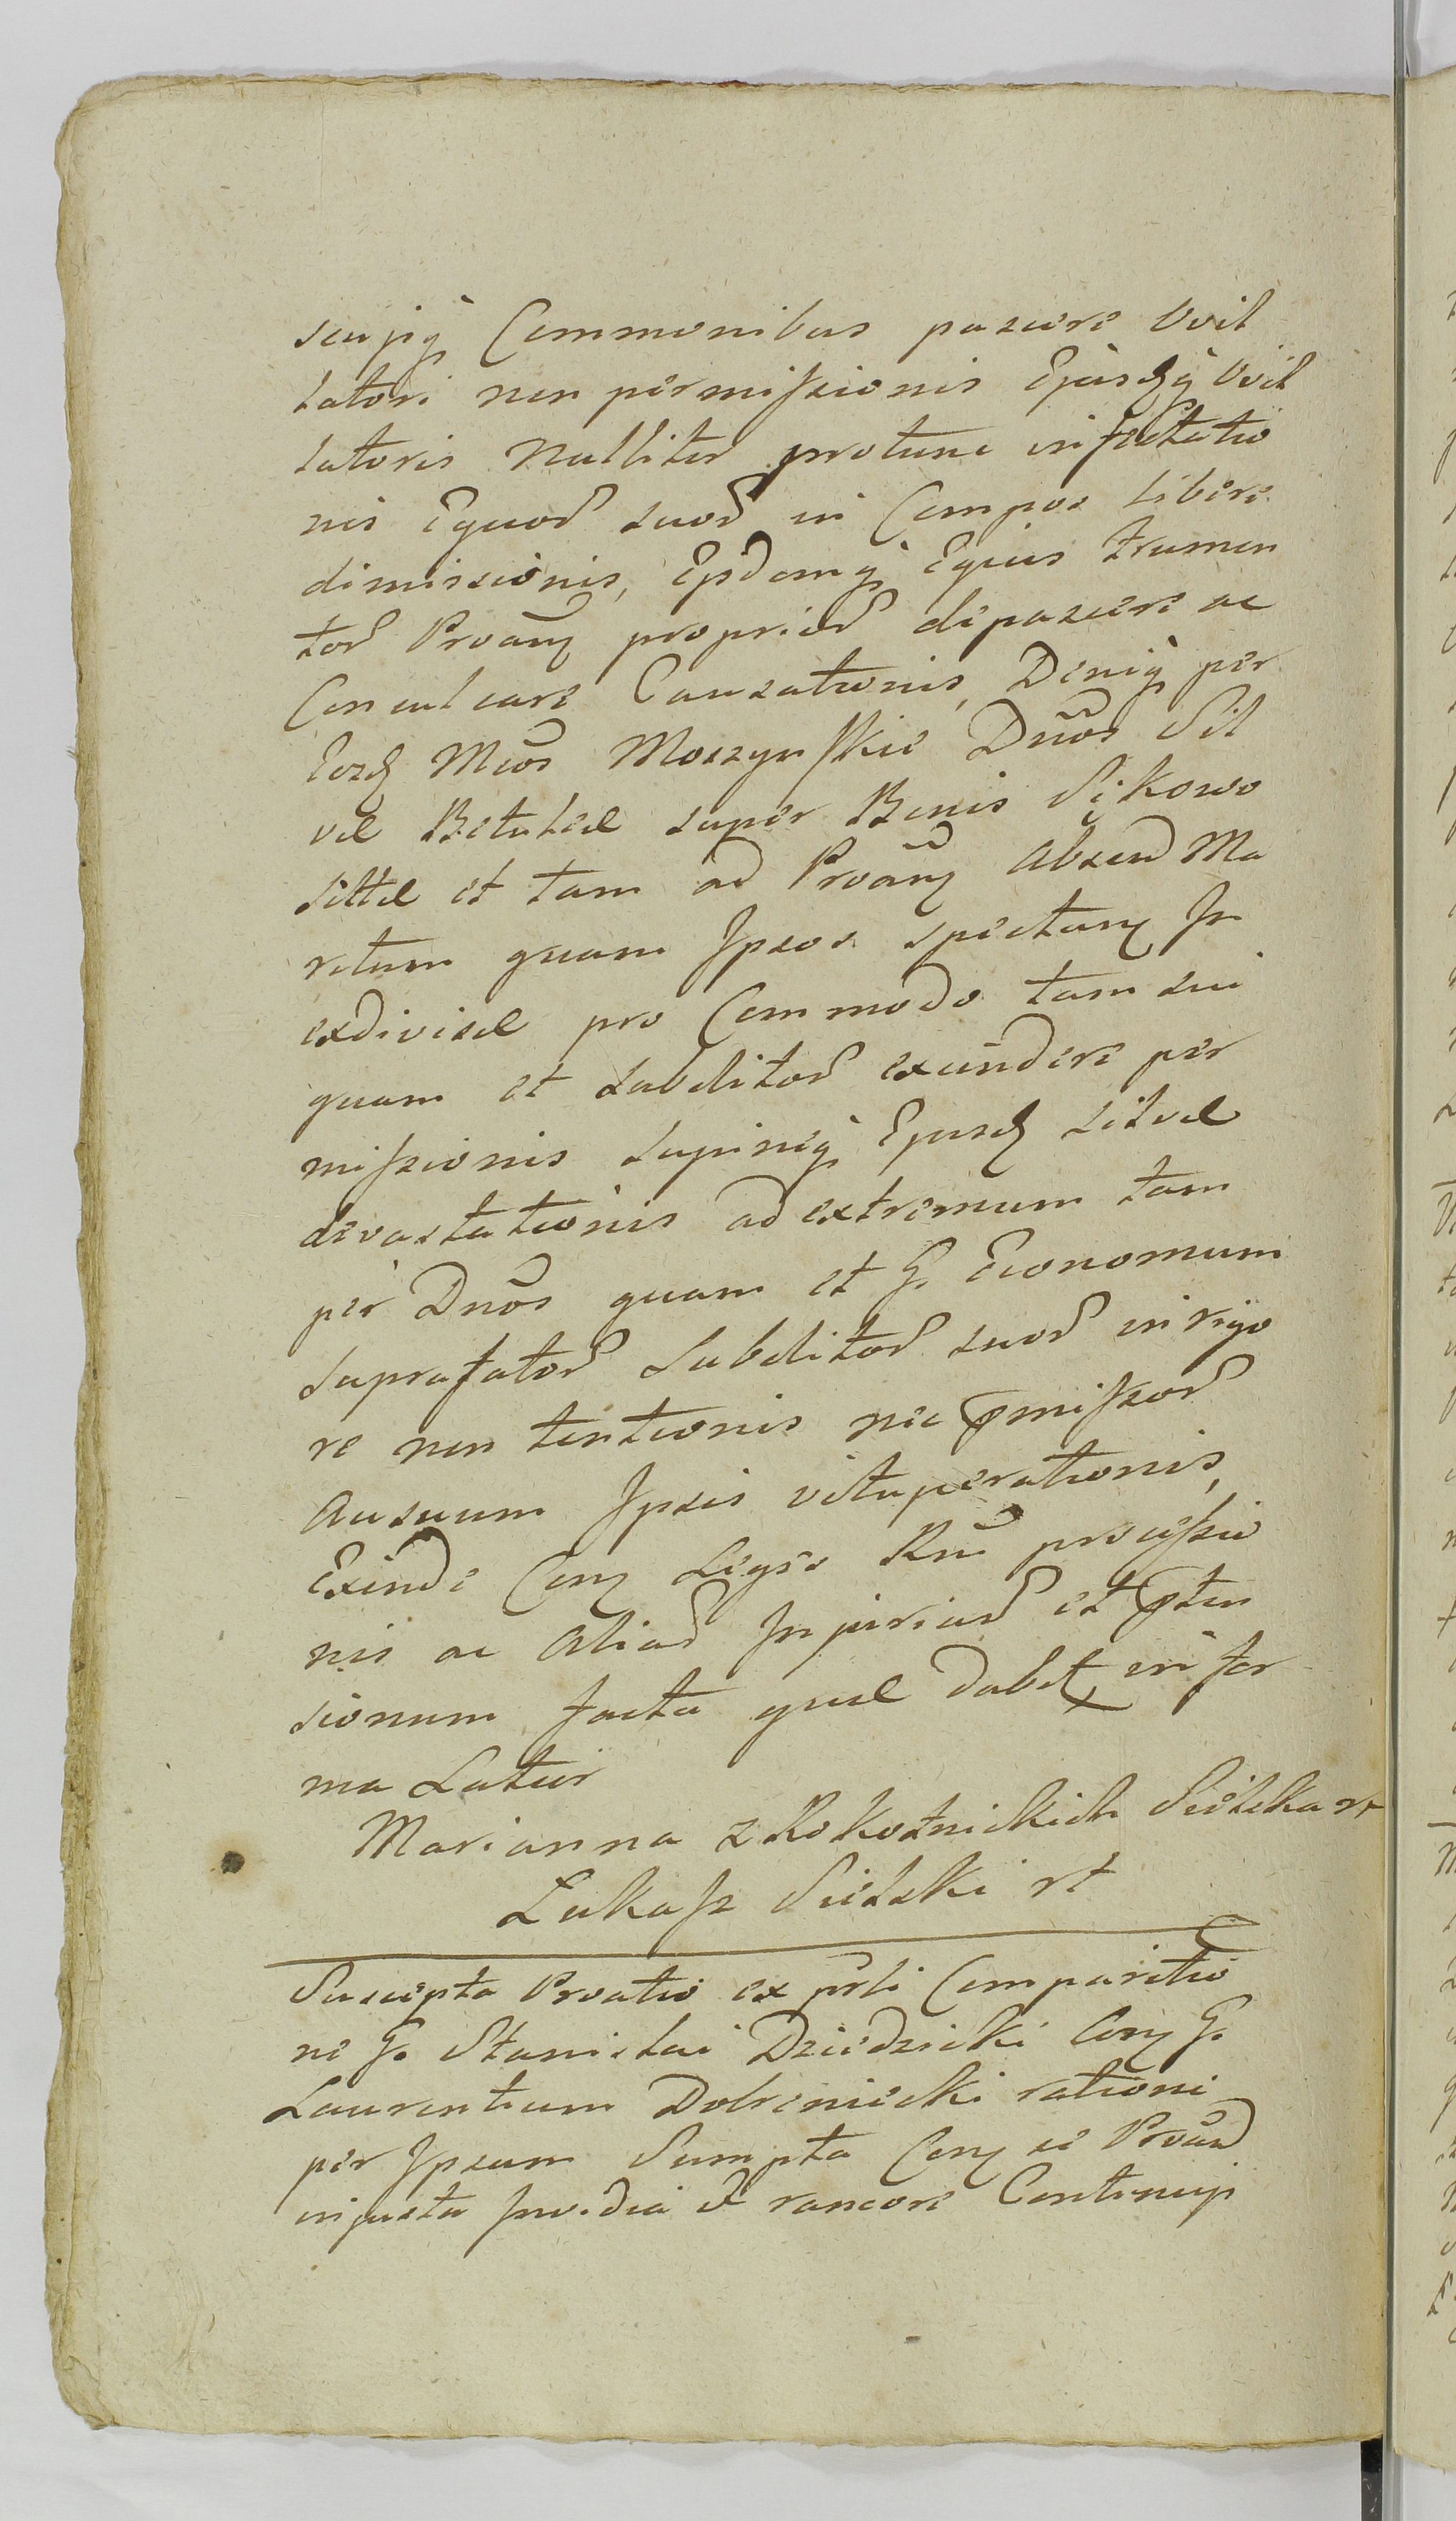 seu jiq Commonibus pascere Vvil
latori non permissionis Ejusdq Vvil
latoris nulliter protunc infestatio
nis Equor suor in Campos libere
dimissionis, Eisdemq Equis frumen
tor Proan proprior depascere ac
Conculcare Causationis, Deniq per
Eosd Mcos Moszynskie Dnos Sil
vae Betulae super Bonis Sękowo
sittae et tam ad Proan absen Ma
ritum quam Ipsos spectan In
exdivisae pro Commodo tam sui
quam et subditor exundere per
missionis supineq Ejusd silvae
devastationis ad extremum tam
per Dnos quam et G. Economum
suprafator Subditor suor in rigo
re non tentionis nec pmissor
ausuum Ipsis vituperationis,
Exinde Con Legse Rni processio
nis ac aliar Injuriar et pten
sionum facta quae dabt in for
ma Latiori
Marianna z Rokotnickich Sielska rt
Łukasz Sielski rt
Suscepta Proatio ex prli Comparitio
ne G. Stanislai Dziedzicki Con G.
Laurentium Dobreniecki rationi
per Ipsum Sumpta Con se Proan
injusta Invidia et rancore Contineq